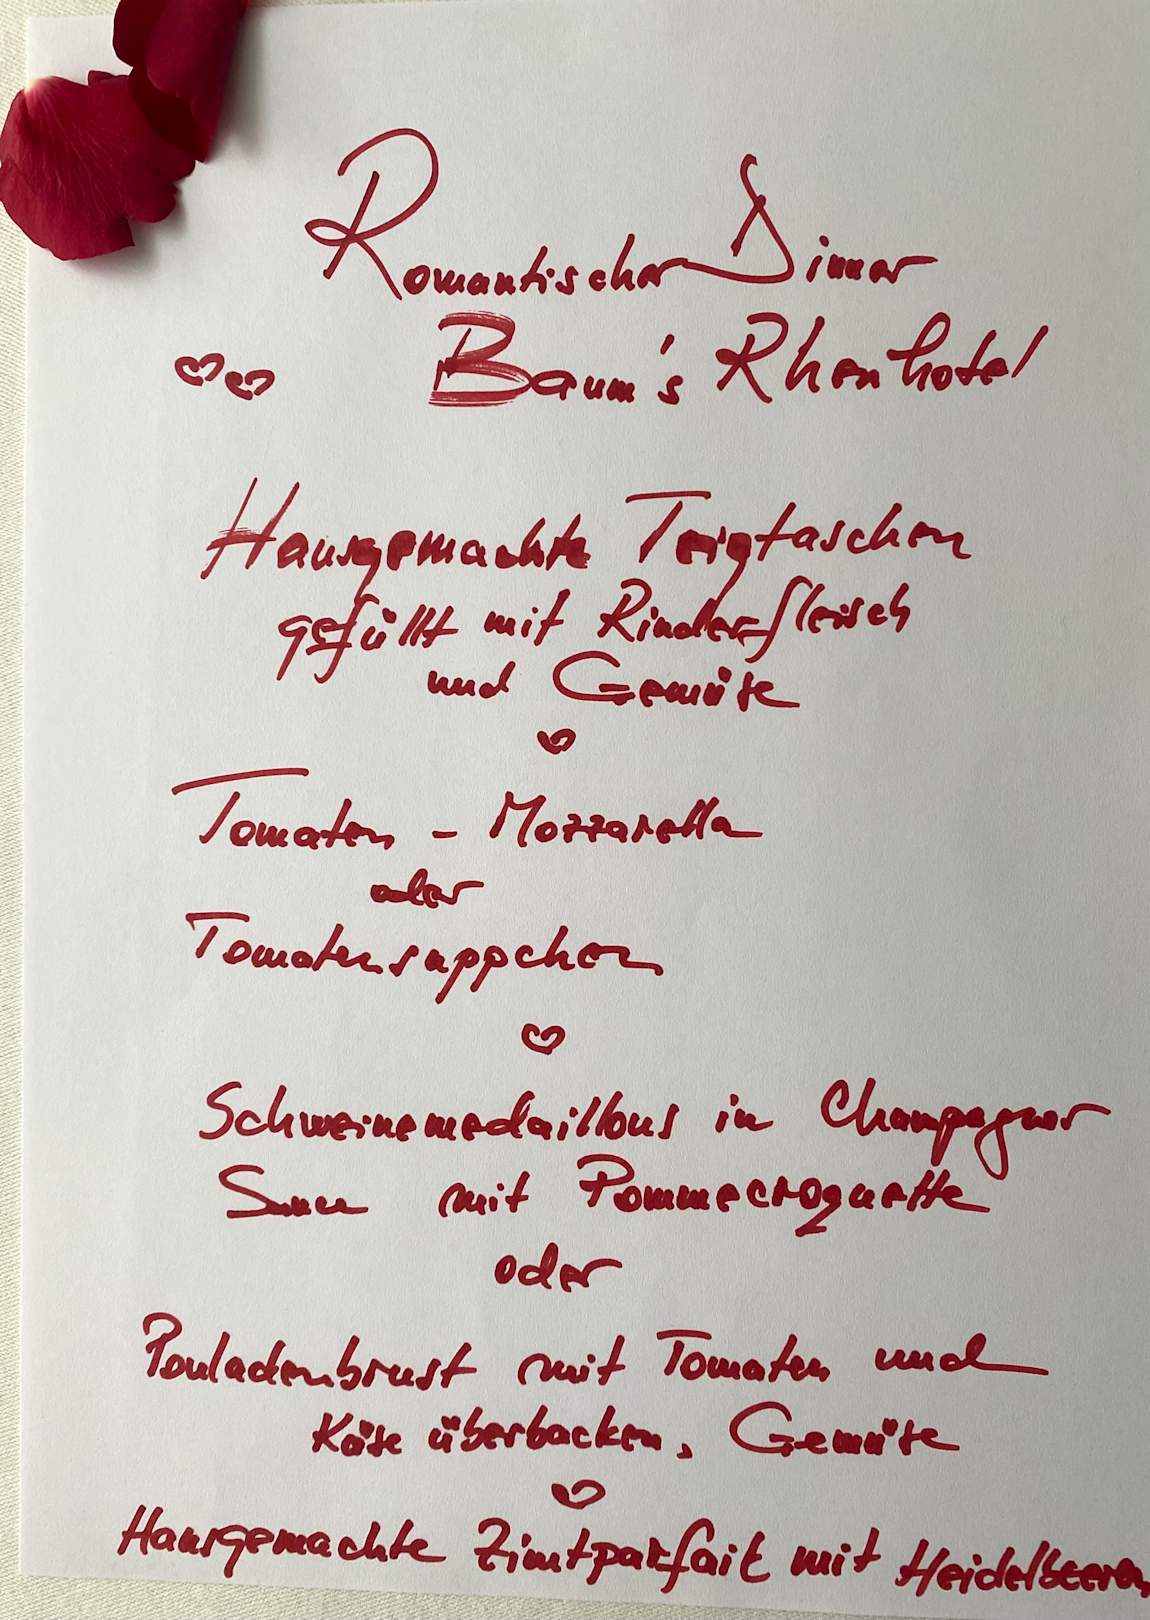 Romantischer Dinner
Baum's Rheinhotel
Hausgemachte Teigtaschen
gefüllt mit Rinderfleisch
und Gemüse
Tomaten - Mozzarella
oder
Tomatensuppchen
Schweinemedaillous in Champagner
Sauce mit Pommecroquette
oder
Pouladenbrust mit Tomaten und
Käse überbacken, Gemüse
Hausgemachte Zimtparfait mit Heidelbeeren